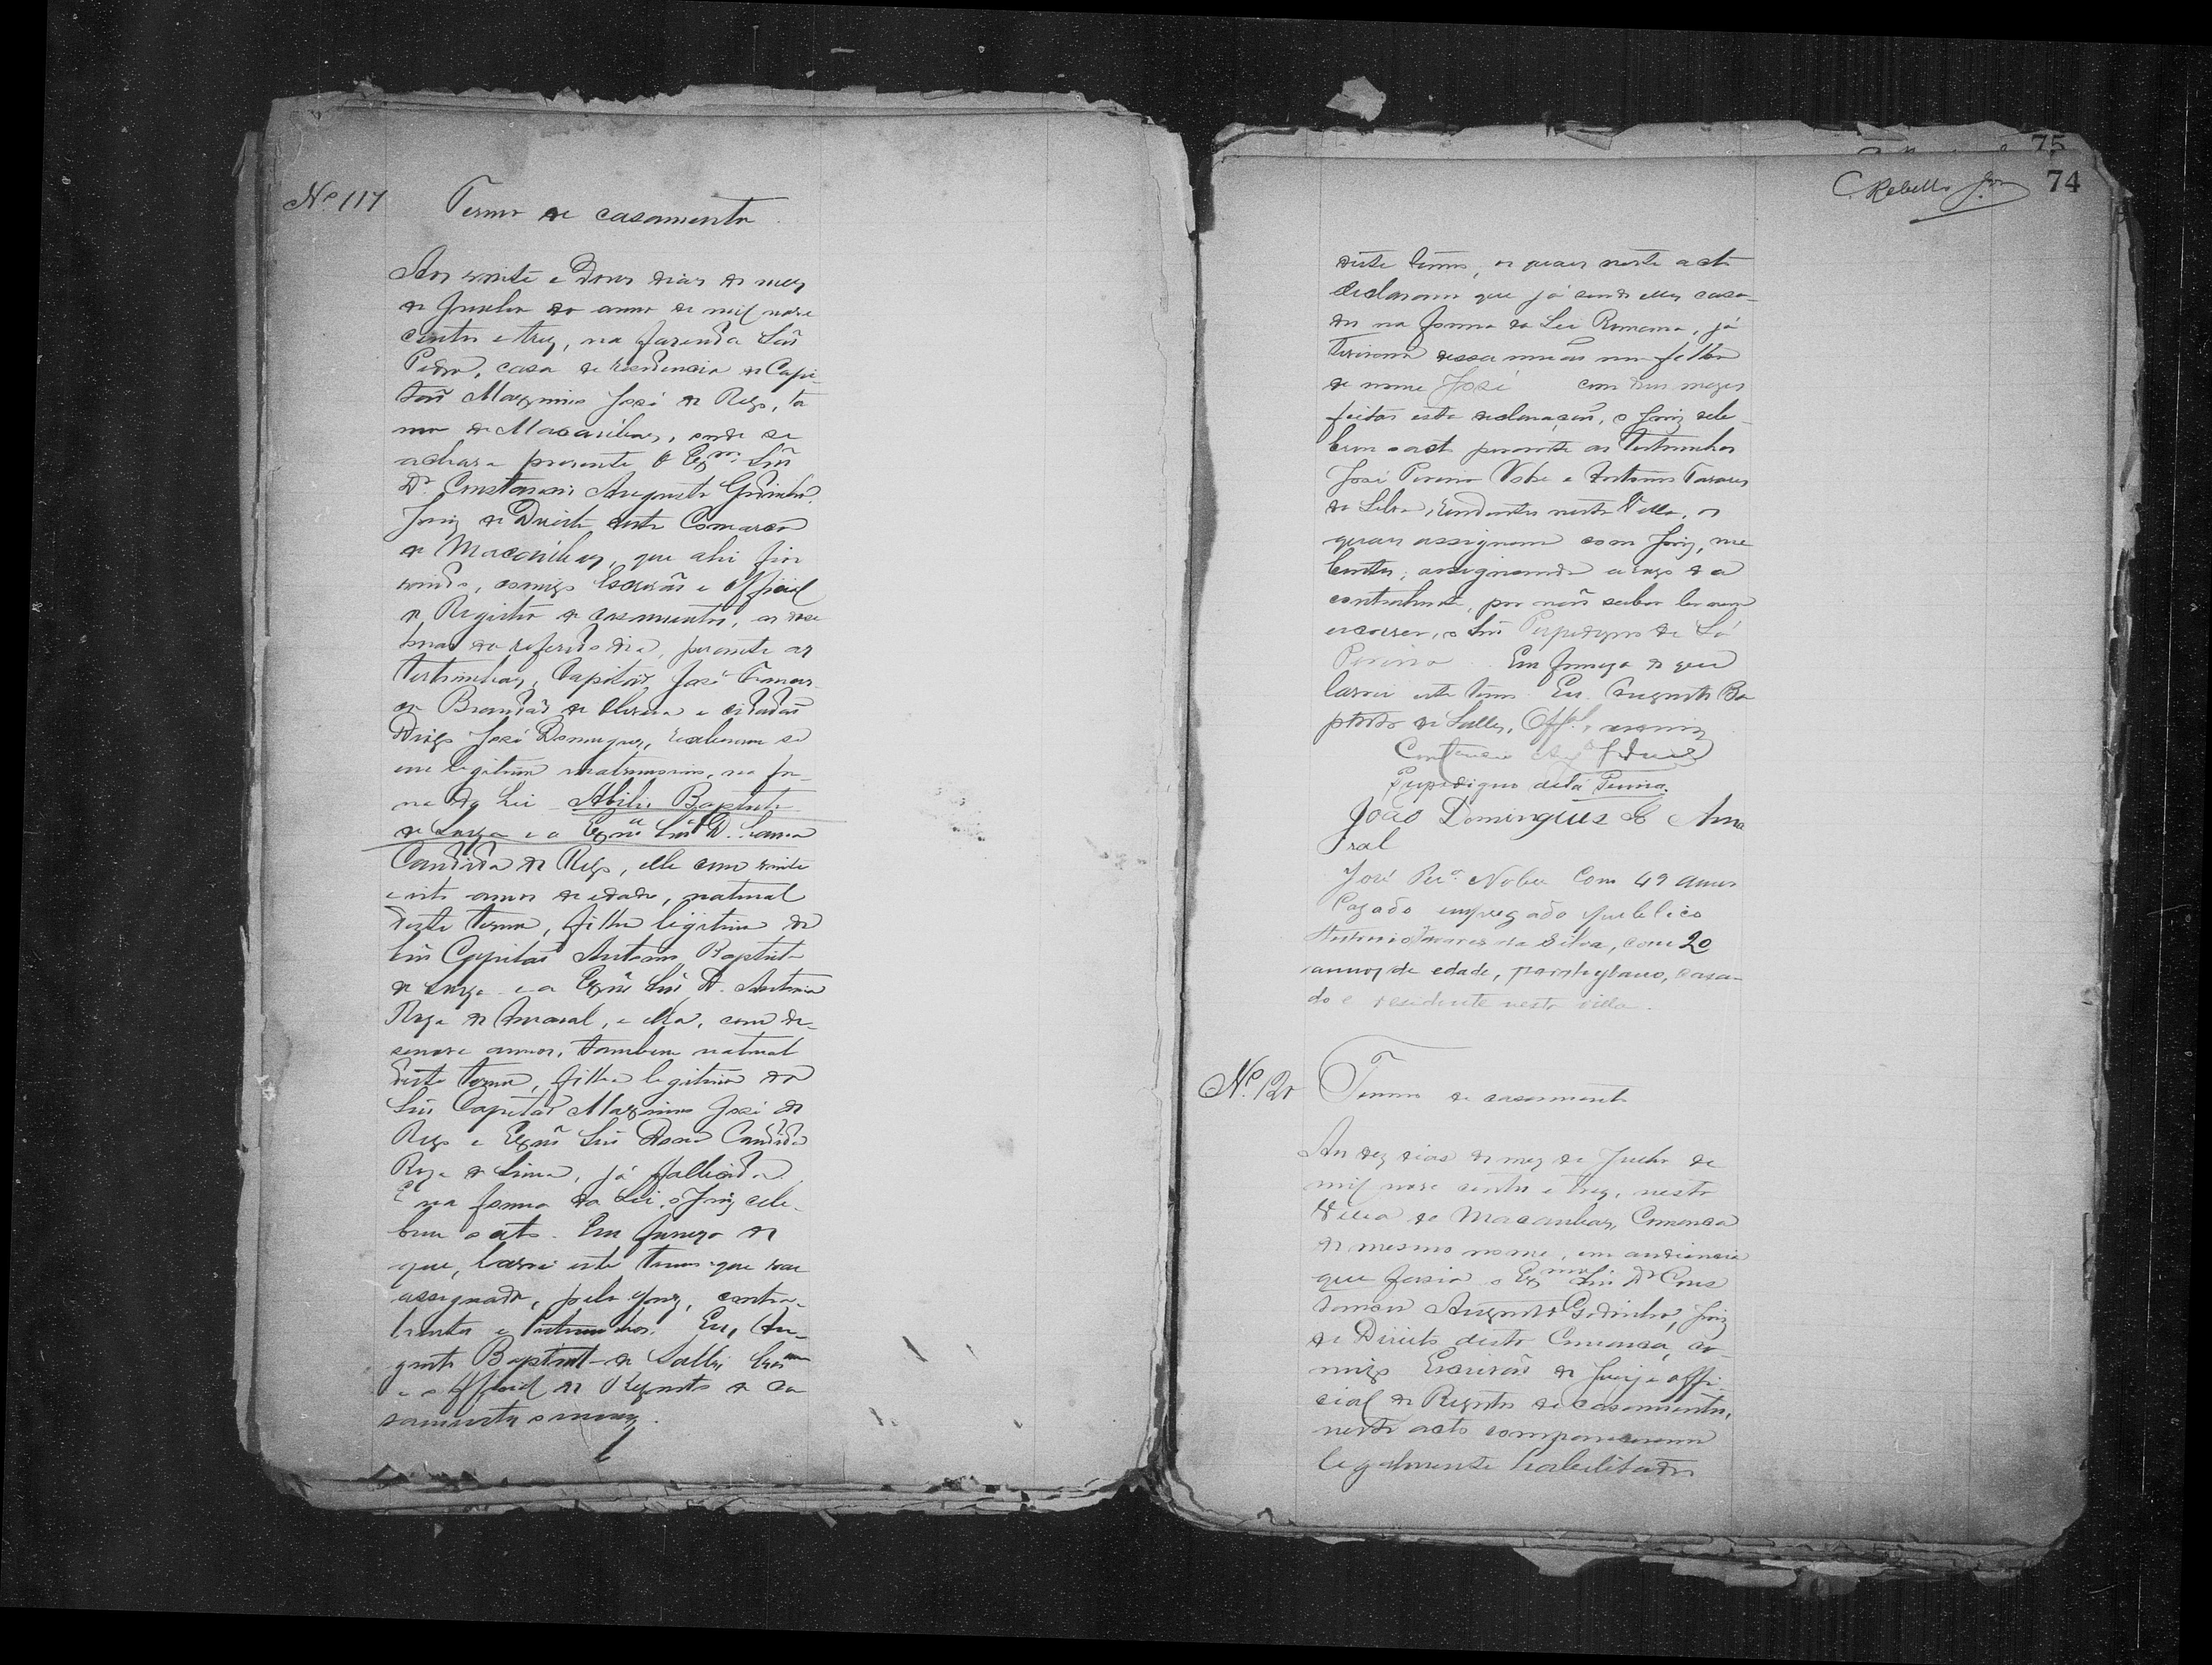 Nº 117
Termo de casamento
Aos vinte e dous dias do mez
de Junho do anno de mil nove
centos e trez, na fazenda São
Pedro, casa de residencia do Capi-
tão Maximino José do Rego, ter
mo de Macaúbas, onde se
achava presente o Exmo. Snr.
Dr. Constancio Augusto Godinho,
Juiz de Direito desta Comarca
de Macaúbas, que ahi foi
vindo, comigo Escrivão e official
do Registro de casamentos, as
horas do referido dia, perante as
testemunhas, Capitão José
Brandão de Oliveira e cidadão
Diogo José Domingues, receberam se
em legitimo matrimonio, na for-
ma da Lei Abilio Baptista
de Souza e a Exma. Snra. D.
Candida do Rego, elle com vinte
e oito annos de edade, natural
deste termo, filho legitimo do
Snr. Capitão Antonio Baptista
de Souza e a Exma. Snra. D. Antonia
Roza do Amaral, e ella, com de-
senove annos, tambem natural
deste termo, filha legitima do
Snr. Capitão Maximino José do
Rego e Exma. Snra. Dona Candida
Roza de Lima, já fallecida.
E na forma da Lei, o Juiz cele-
brou o acto. Em firmeza do
que, lavrei este termo que vae
assignado, pelo Juiz, contra-
hentes e testemunhas. Eu, Au-
gusto Baptista de Salles Escram
e official do Registro de ca
samentos o escrevy.
75
C. Rebello Jor. 74
deste termo, os quaes neste acto
declararam que já sendo elles casa-
dos na forma da Lei Romana, já
tiveram dessa união um filho
de nome José com dous mezes
feitas esta declaração, o Juiz cele-
brou o acto perante as testemunhas
José Pereira Nobre e Antonio Tavares
da Silva, residentes nesta Villa, os
quaes assignam com Juiz, nu
bentes; assignando a rogo da
contrahente, por não saber ler nem
escrever, o Snr. Perpedigno de Sá
Pereira. Em firmeza do que
lavrei este termo. Eu Augusto Ba
ptista de Salles, Offal, escrevy
Perpedigno de Sá Pereira.
João Domingues do Ama
ral
José Pera. Nobre Com 49 annos
Cazado empregado publico
Antonio Tavares da Silva, com 20
annos de edade, casa-
do e residente nesta villa.
Nº 120
Termo de casamento
Aos dez dias do mez de Julho de
mil nove centos e trez, nesta
Villa de Macaubas, Comarca
do mesmo nome, em audiencia
que fasia o Exmo. Snr. Dr. Cons
tancio Augusto Godinho, Juiz
de Direito desta Comarca, co-
migo Escrivão do Juizo e offi-
cial do Registro de casamentos,
neste acto compareceram
legalmente habilitados